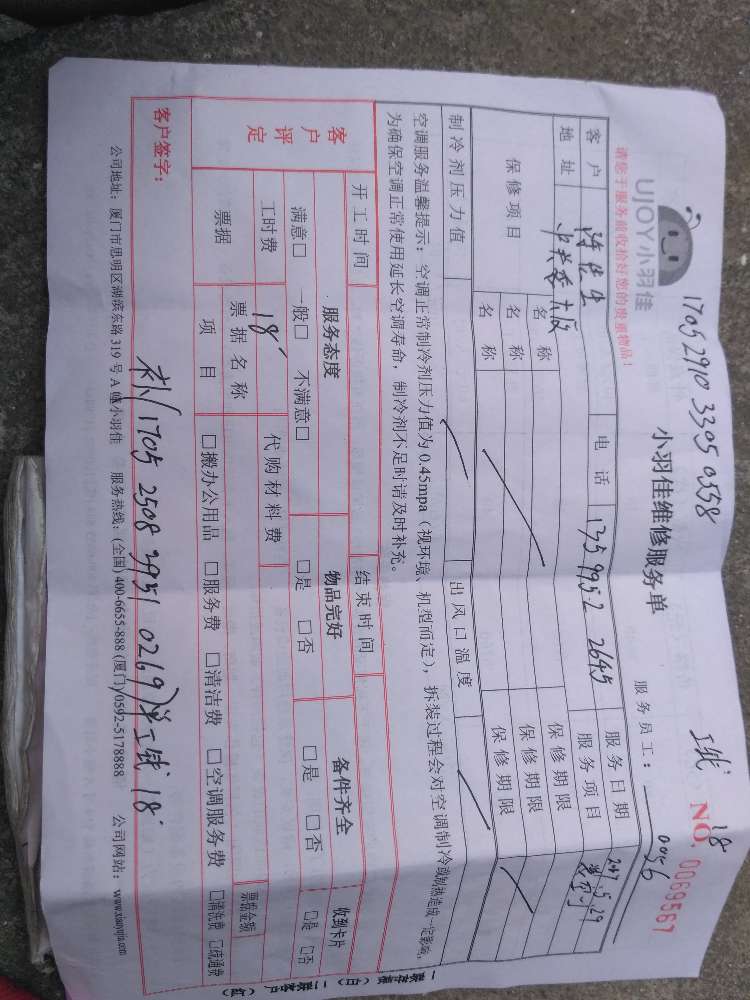 1705 2910 3305 0358
工钱 18
UJOY小羽佳
小羽佳维修服务单
NO. 0069567
请您于服务前收拾好您的贵重物品!
服务员工: 0056
客户
电话 1359952 2645
服务日期
地址
服务项目
保修项目
名称
保修期限
名称
保修期限
名称
保修期限
制冷剂压力值
出风口温度
空调服务温馨提示:空调正常制冷剂压力值为0.45mpa(视环境、机型而定),拆装过程会对空调制冷或制热造成一定影响,
为确保空调正常使用延长空调寿命,制冷剂不足时请及时补充。
开工时间
结束时间
客户评定
服务态度
物品完好
备件齐全
收到卡片
满意□ 一般□ 不满意□
□是 □否
□是 □否
□是 □否
工时费 18
代购材料费
票据
票据名称
票据金额
项目
□搬办公用品 □服务费 □清洁费 □空调服务费 □清洗费 □疏通费
客户签字:
补(1705 2508 2951 0269)单工钱18
公司地址:厦门市思明区湖滨东路319号A幢小羽佳 服务热线:(全国)400-6655-888(厦门)0592-5178888 公司网站:www.xiaoyujia.com